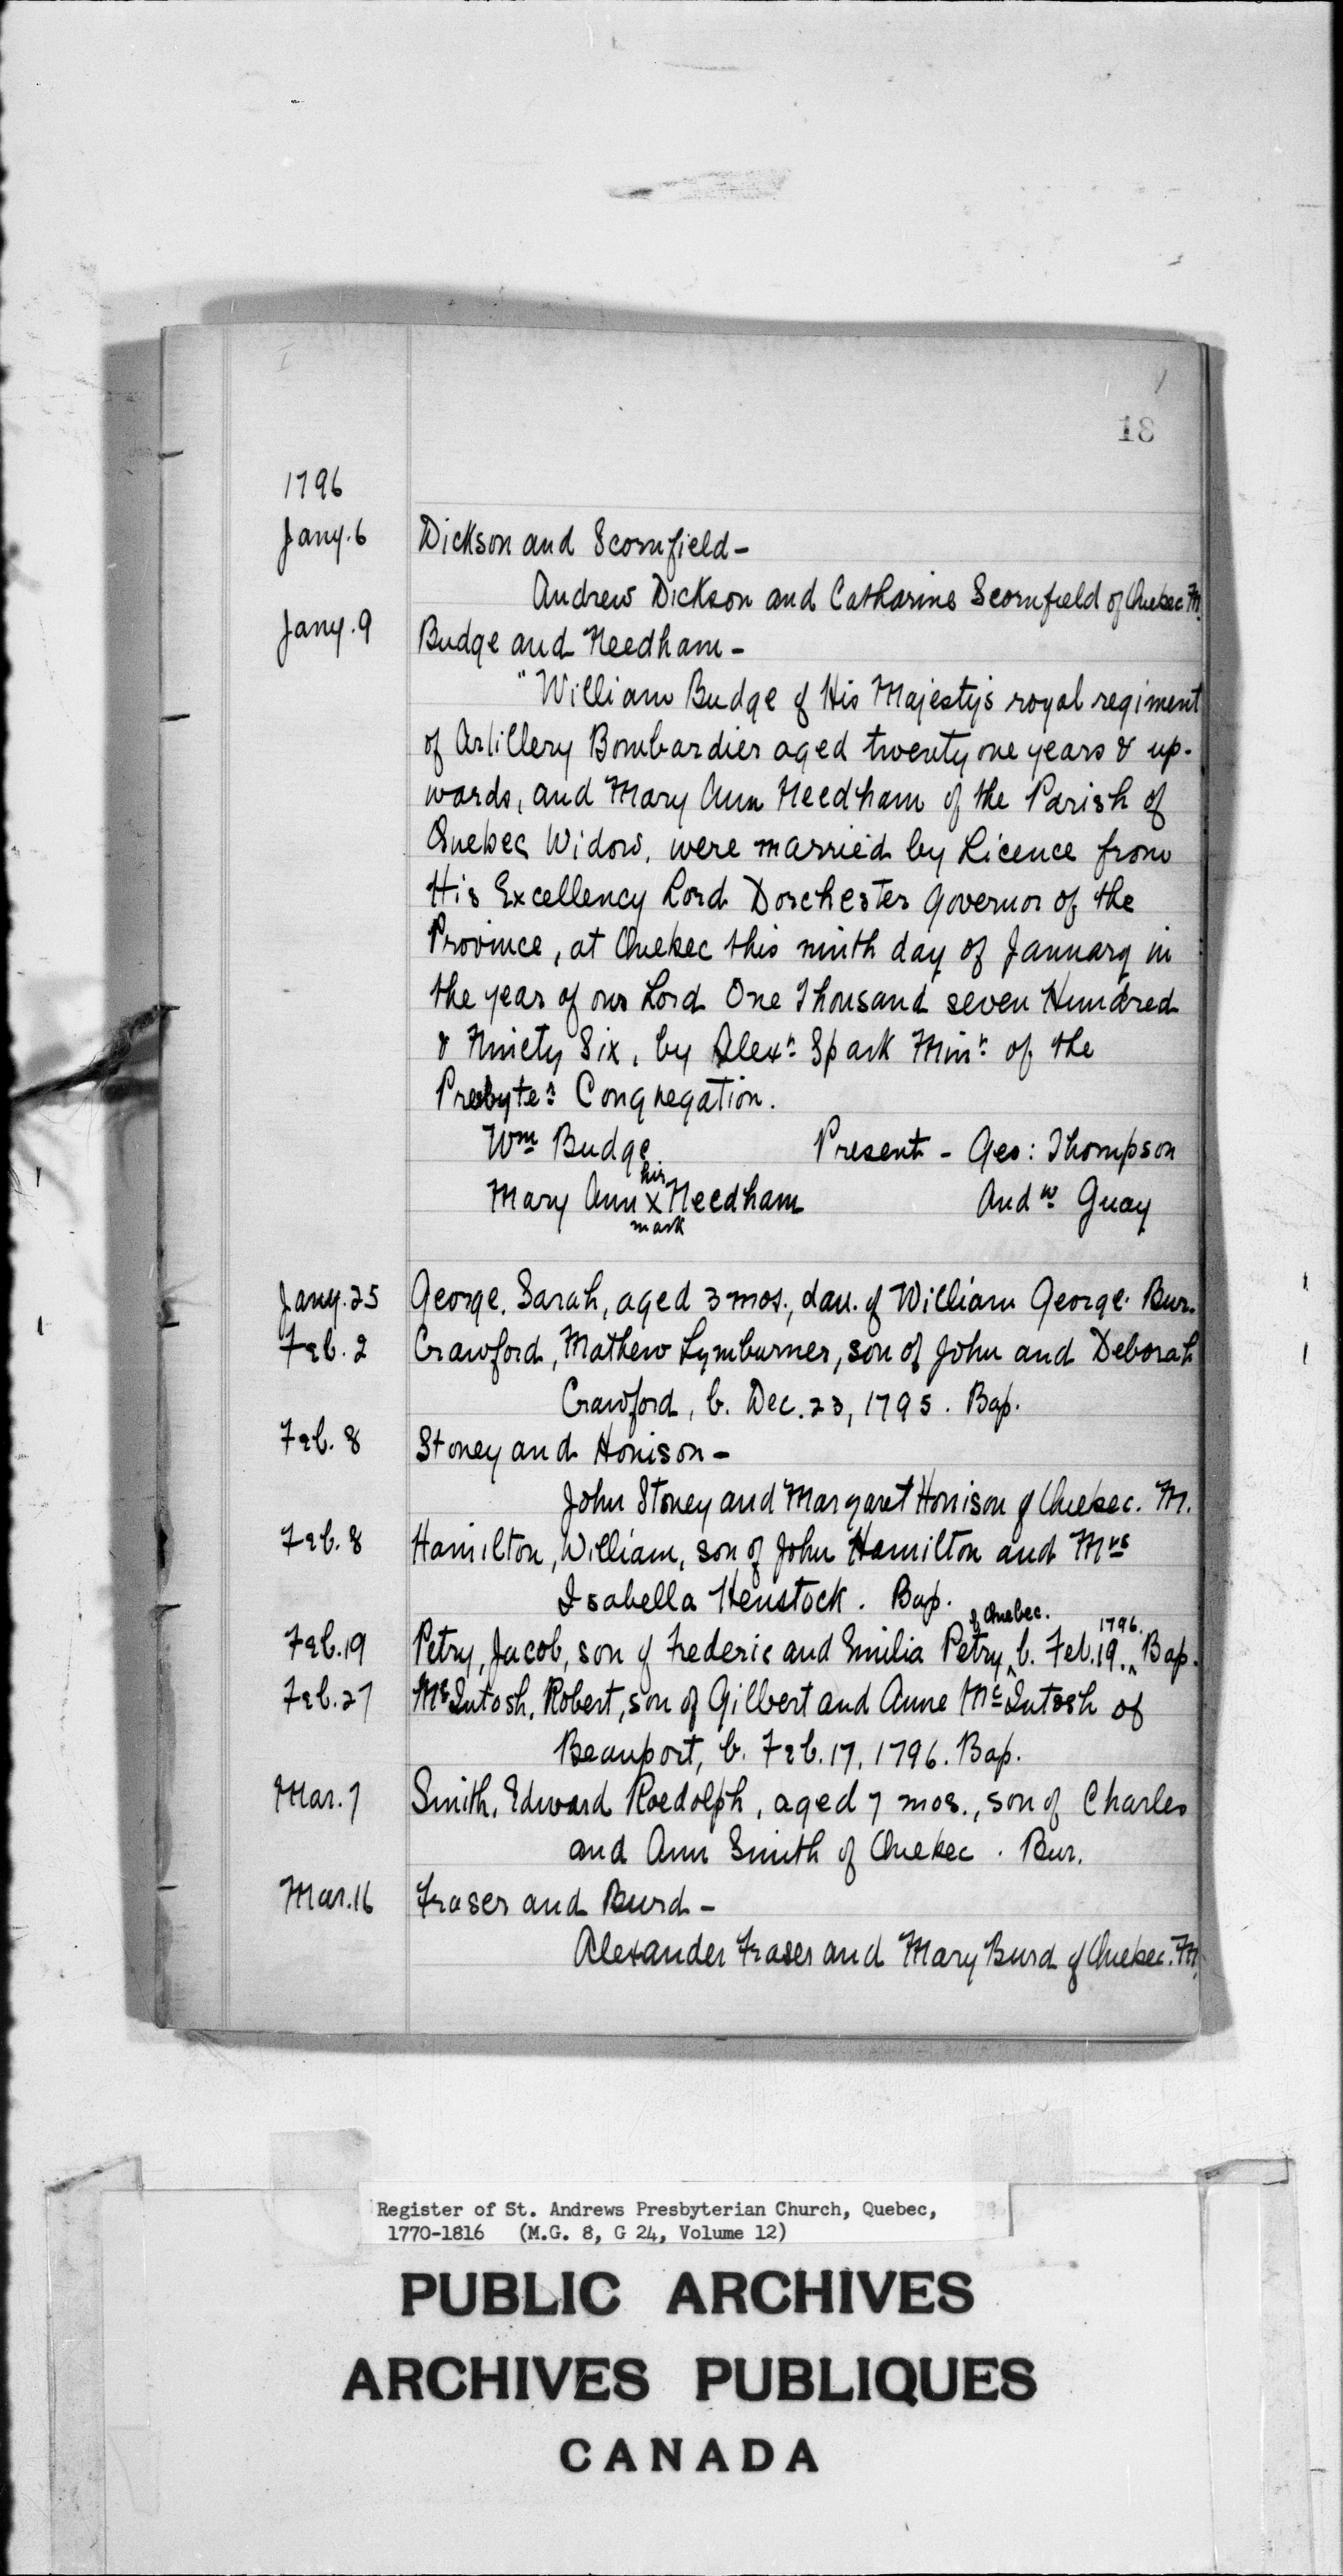 18
1796
Jany. 6 Dickson and Scornfield -
Andrew Dickson and Catharine Scornfield of Quebec M.
Jany. 9 Budge and Needham -
"William Budge of His Majesty's royal regiment
of Artillery Bombardier aged twenty one years & up-
wards, and Mary Ann Needham of the Parish of
Quebec Widow, were married by Licence from
His Excellency Lord Dorchester Governor of the
Province, at Quebec this ninth day of January in
the year of our Lord One Thousand seven Hundred
& Ninety Six, by Alexr. Spark Minr. of the
Presbyter: Congregation.
Wm Budge Present - Geo: Thompson
her
Mary Ann X Needham Andw Guay
mark
Jany. 25 George, Sarah, aged 3 mos., dau. of William George. Bur.
Feb. 2 Crawford, Mathew Lymburner, son of John and Deborah
Crawford, b. Dec. 23, 1795. Bap.
Feb. 8 Stoney and Honison -
John Stoney and Margaret Honison of Quebec. M.
Feb. 8 Hamilton, William, son of John Hamilton and Mrs
Isabella Henstock. Bap.
of Quebec. 1796.
Feb. 19 Petry, Jacob, son of Frederic and Emilia Petry ^ b. Feb. 19. ^ Bap.
Feb. 27 McIntosh, Robert, son of Gilbert and Anne McIntosh of
Beauport, b. Feb. 17, 1796. Bap.
Mar. 7 Smith, Edward Roedolph, aged 7 mos., son of Charles
and Ann Smith of Quebec. Bur.
Mar. 16 Fraser and Burd -
Alexander Fraser and Mary Burd of Quebec. M.
Register of St. Andrews Presbyterian Church, Quebec,
1770-1816 (M.G. 8, G 24, Volume 12)
PUBLIC ARCHIVES
ARCHIVES PUBLIQUES
CANADA